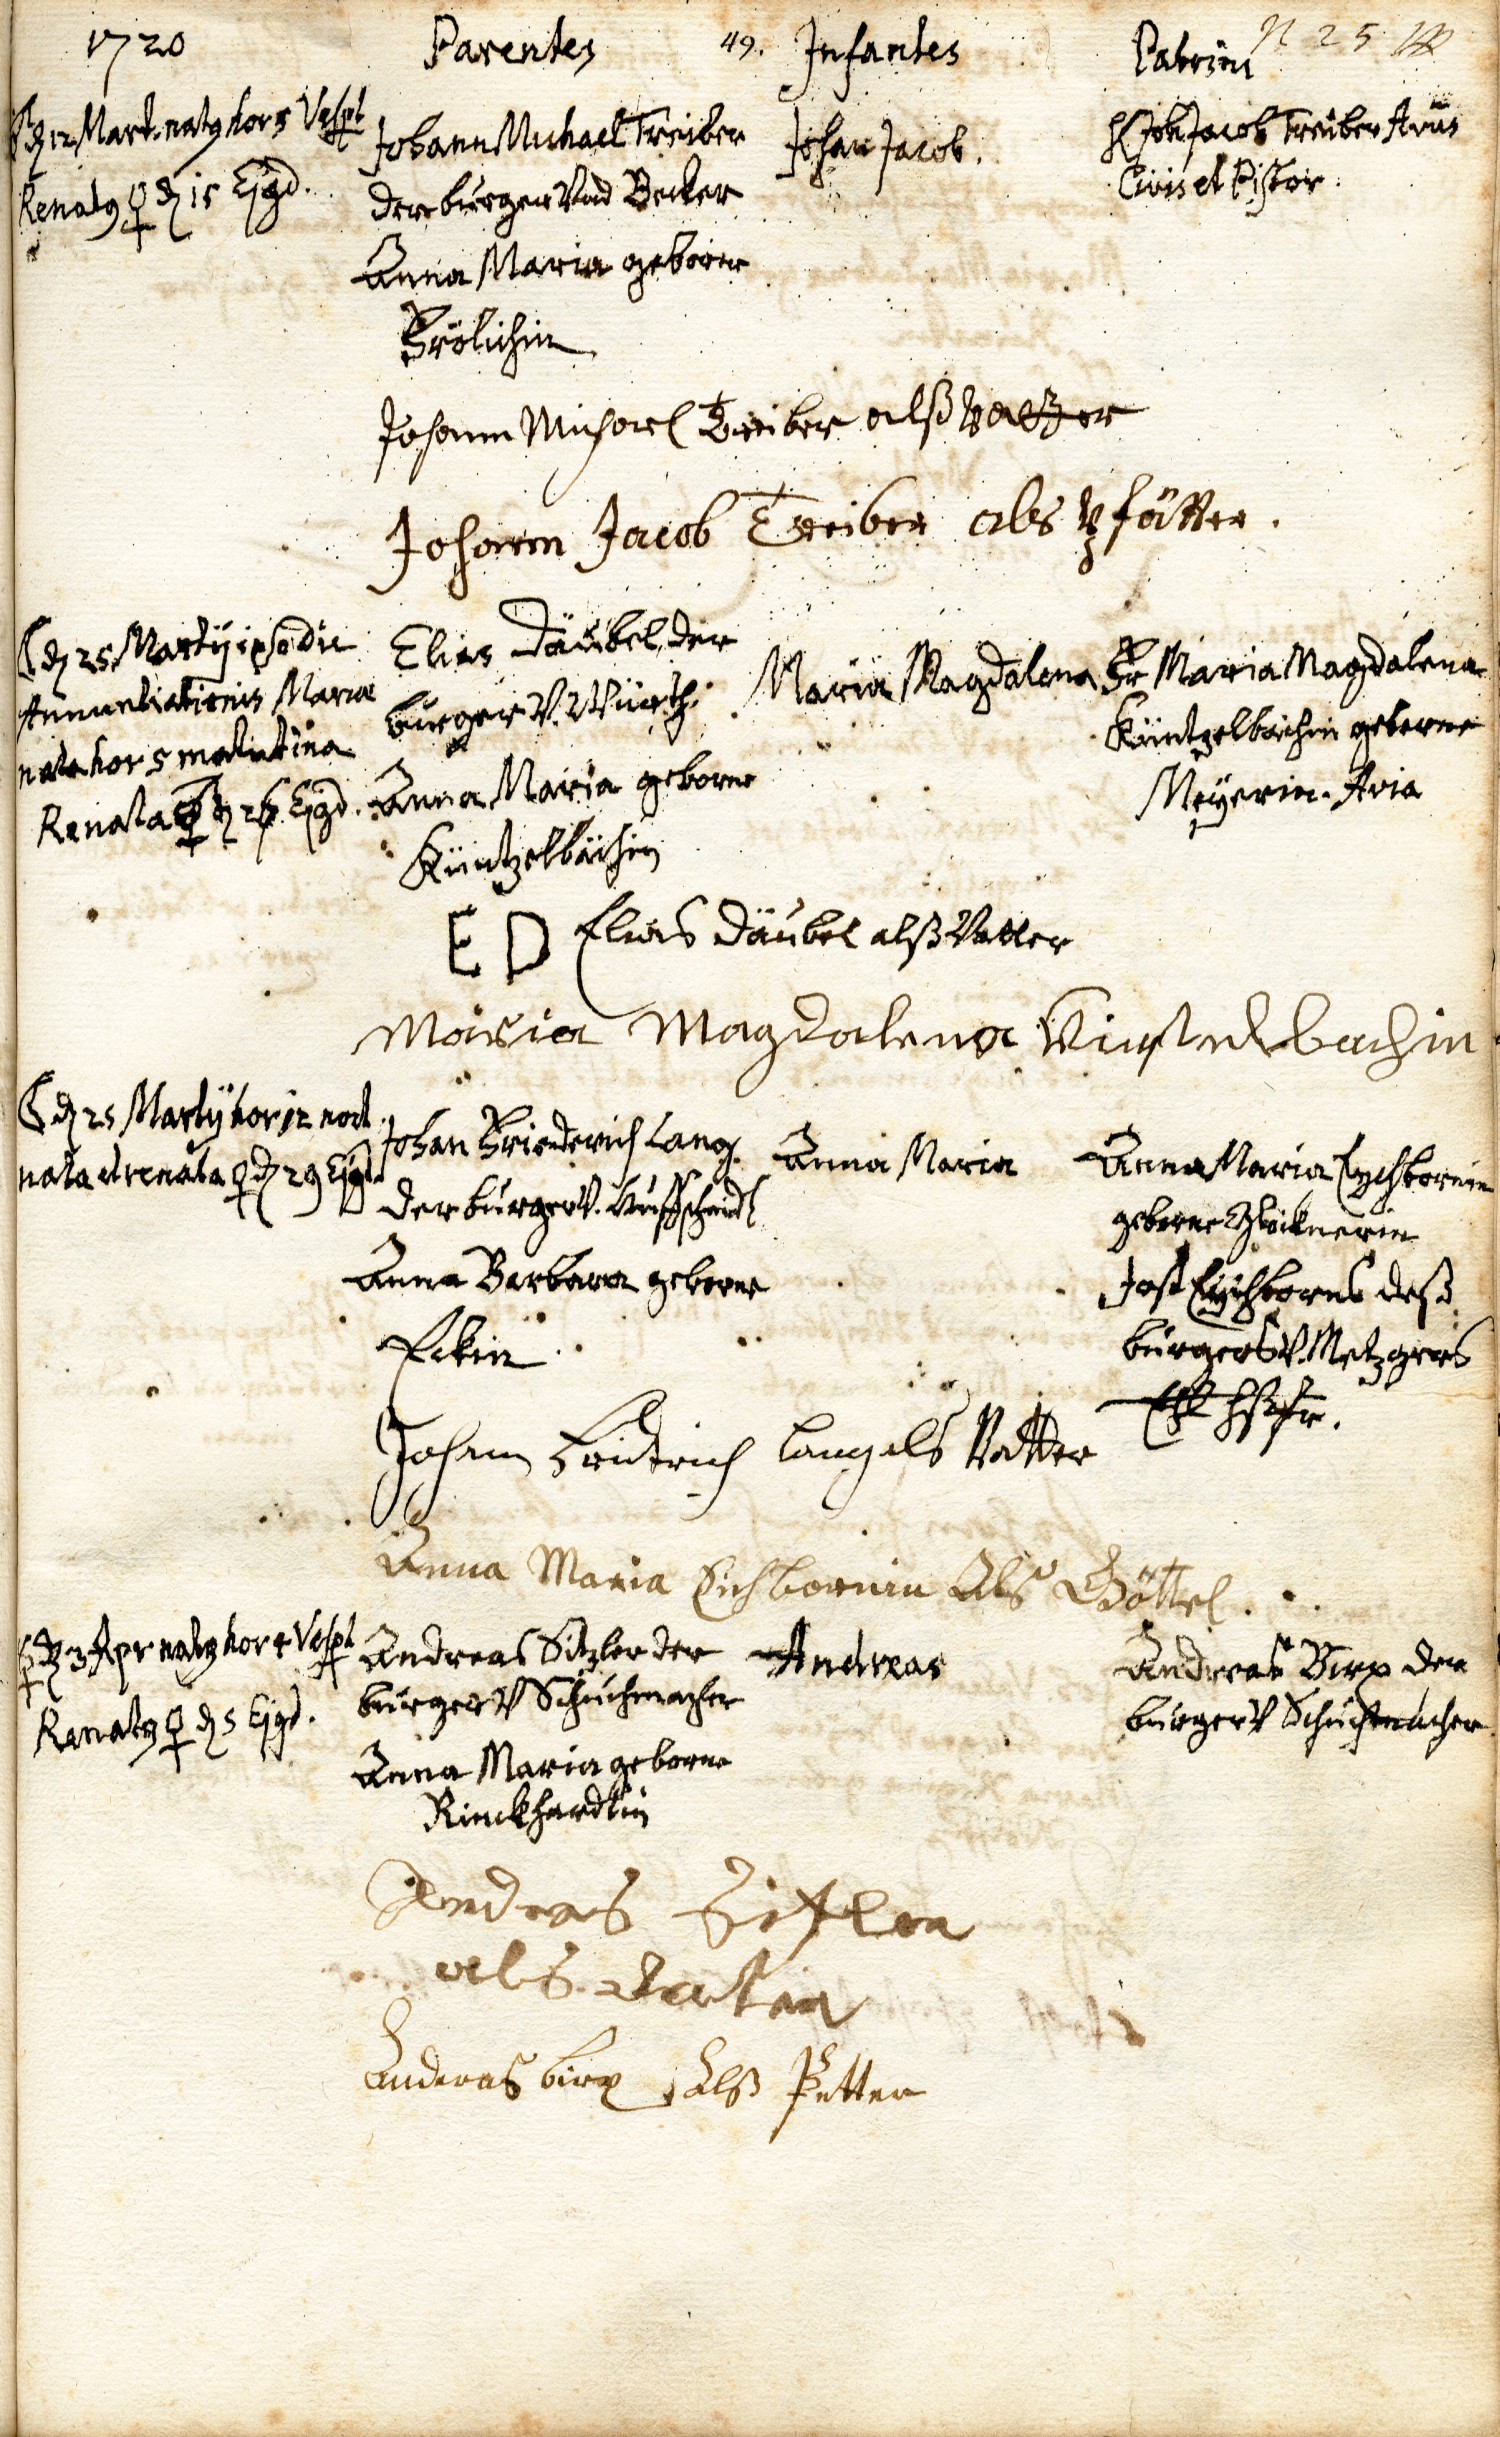 1720 Parentes 49. Infantes Patrini N 25
d 12 Mart. natg hor 5 Vespt
Renatg ♀ d 15 Ejgd.
Johann Michael Treiber
der burger Vnd Becker
Anna Maria geborne
Frölichin
Johan Jacob.
H Joh Jacob Treiber Avus
Civis et Pistor.
Johann Michael Treiber alß vatter
Johann Jacob Treiber als Pfätter.
d 25 Martÿ ipso die
Annuntiationis Mariæ
nata hor 5 matutina
Renata d 26 Ejgd.
Elias Däubel, der
burger V. Würth.
Anna Maria geborne
Küntzelbächin
Maria Magdalena
Fr Maria Magdalena
Küntzelbächin geborne
Meÿerin. Avia
E D Elias Däubel alß Vatter
Maria Magdalena
d 25 Martÿ hor 12 noct.
nata et renata ♀ d 29 Ejgd
Johan Friederich Lang
der burger V. Huffschmidt
Anna Barbara geborne
Eckin
Anna Maria
Anna Maria Eychbornin
geborne Glöcknerin
Jost Eychborns deß
burgers V. Metzgers
hßfr.
Johann Fridrich Lang als Vatter
Anna Maria Eichbornin Als Göttel.
d 3 Apr natg hor 4 Vespt
Renatg ♀ d 5 Ejgd.
Andreas Sitzler der
burger V Schuhmacher
Anna Maria geborne
Rinckhardtin
Andreas
Andreas Birx der
burger V Schuhmacher
Andreas Sitzler
als Vatter
Andereas birx Alß Petter